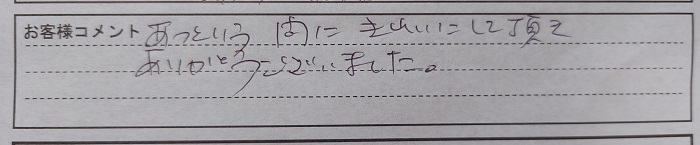 お客様コメント あっという間にきれいにして頂き
ありがとうございました。